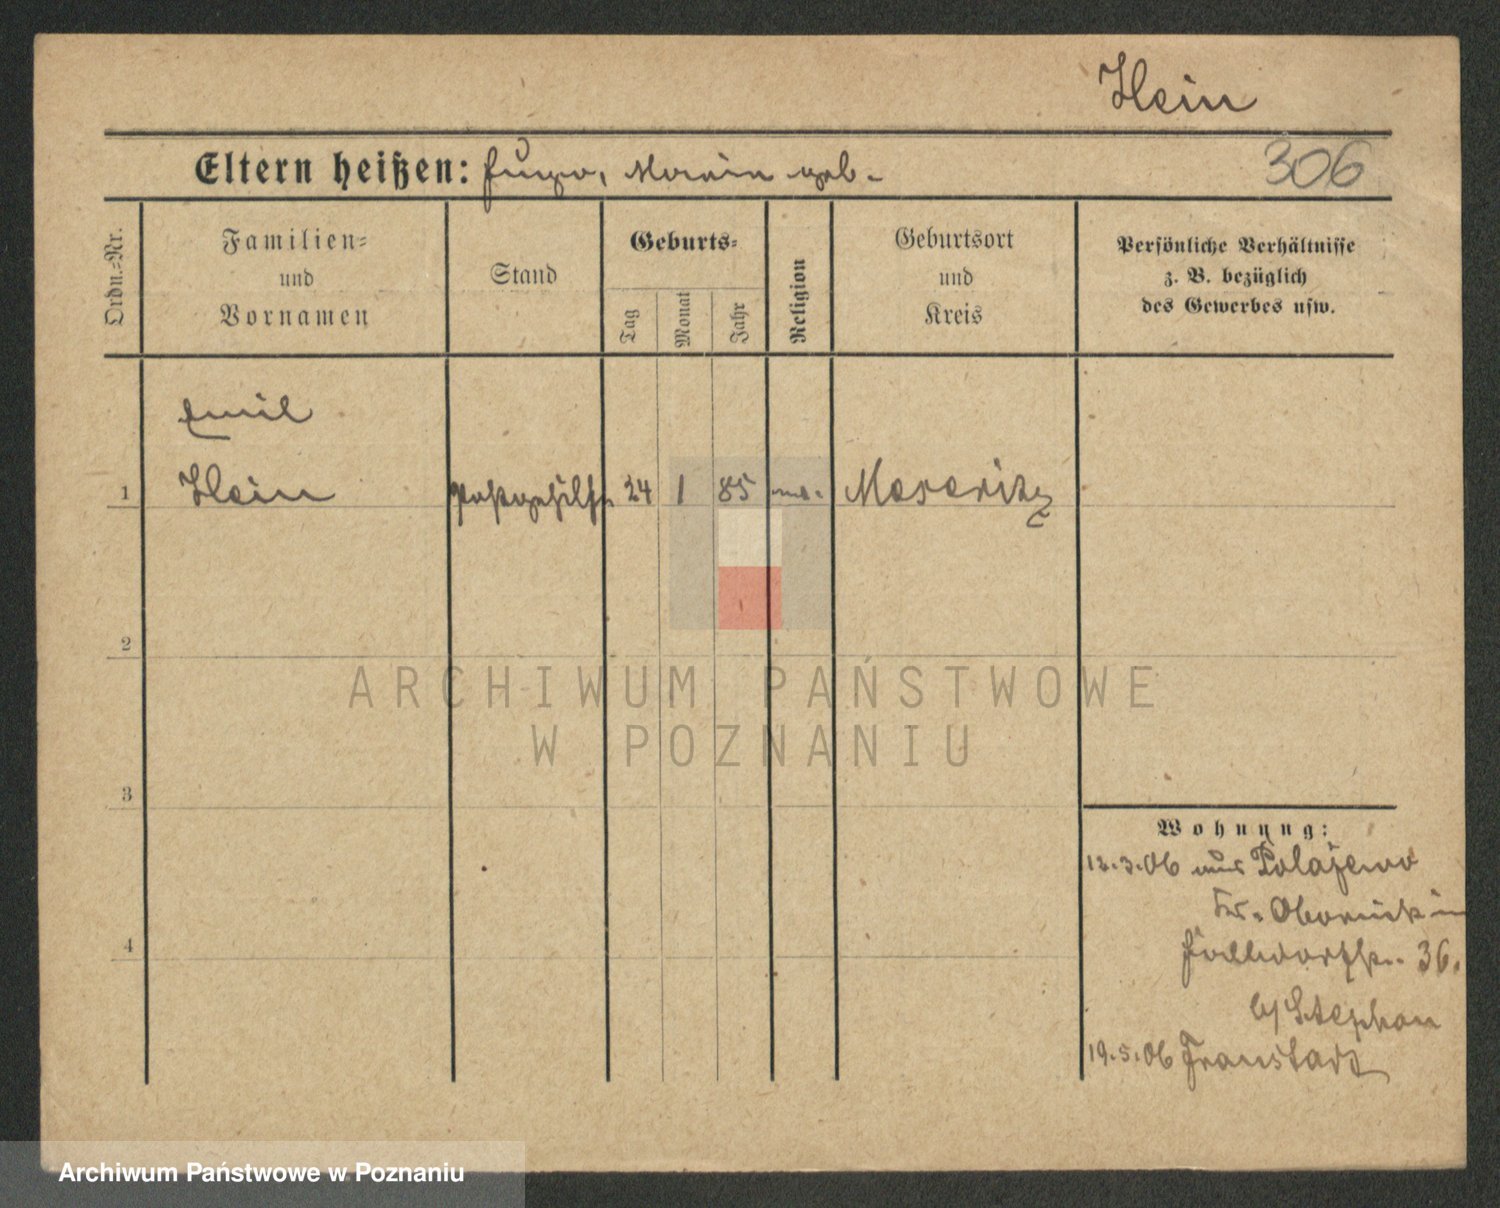 Hein
Eltern heißen: Hugo, Maria geb.
306
Ordn.=Nr.
Familien=
und
Vornamen
Stand
Geburts=
Tag
Monat
Jahr
Religion
Geburtsort
und
Kreis
Persönliche Verhältnisse
z. B. bezüglich
des Gewerbes usw.
Emil
1 Hein Postgehilfe 24 1 85 Meseritz
2
3
4
Wohnung:
12.3.06 aus Polajewo
Kr. Obornik in
36.
b/ Stephan
19.5.06 Fraustadt
ARCHIWUM PAŃSTWOWE
W POZNANIU
Archiwum Państwowe w Poznaniu